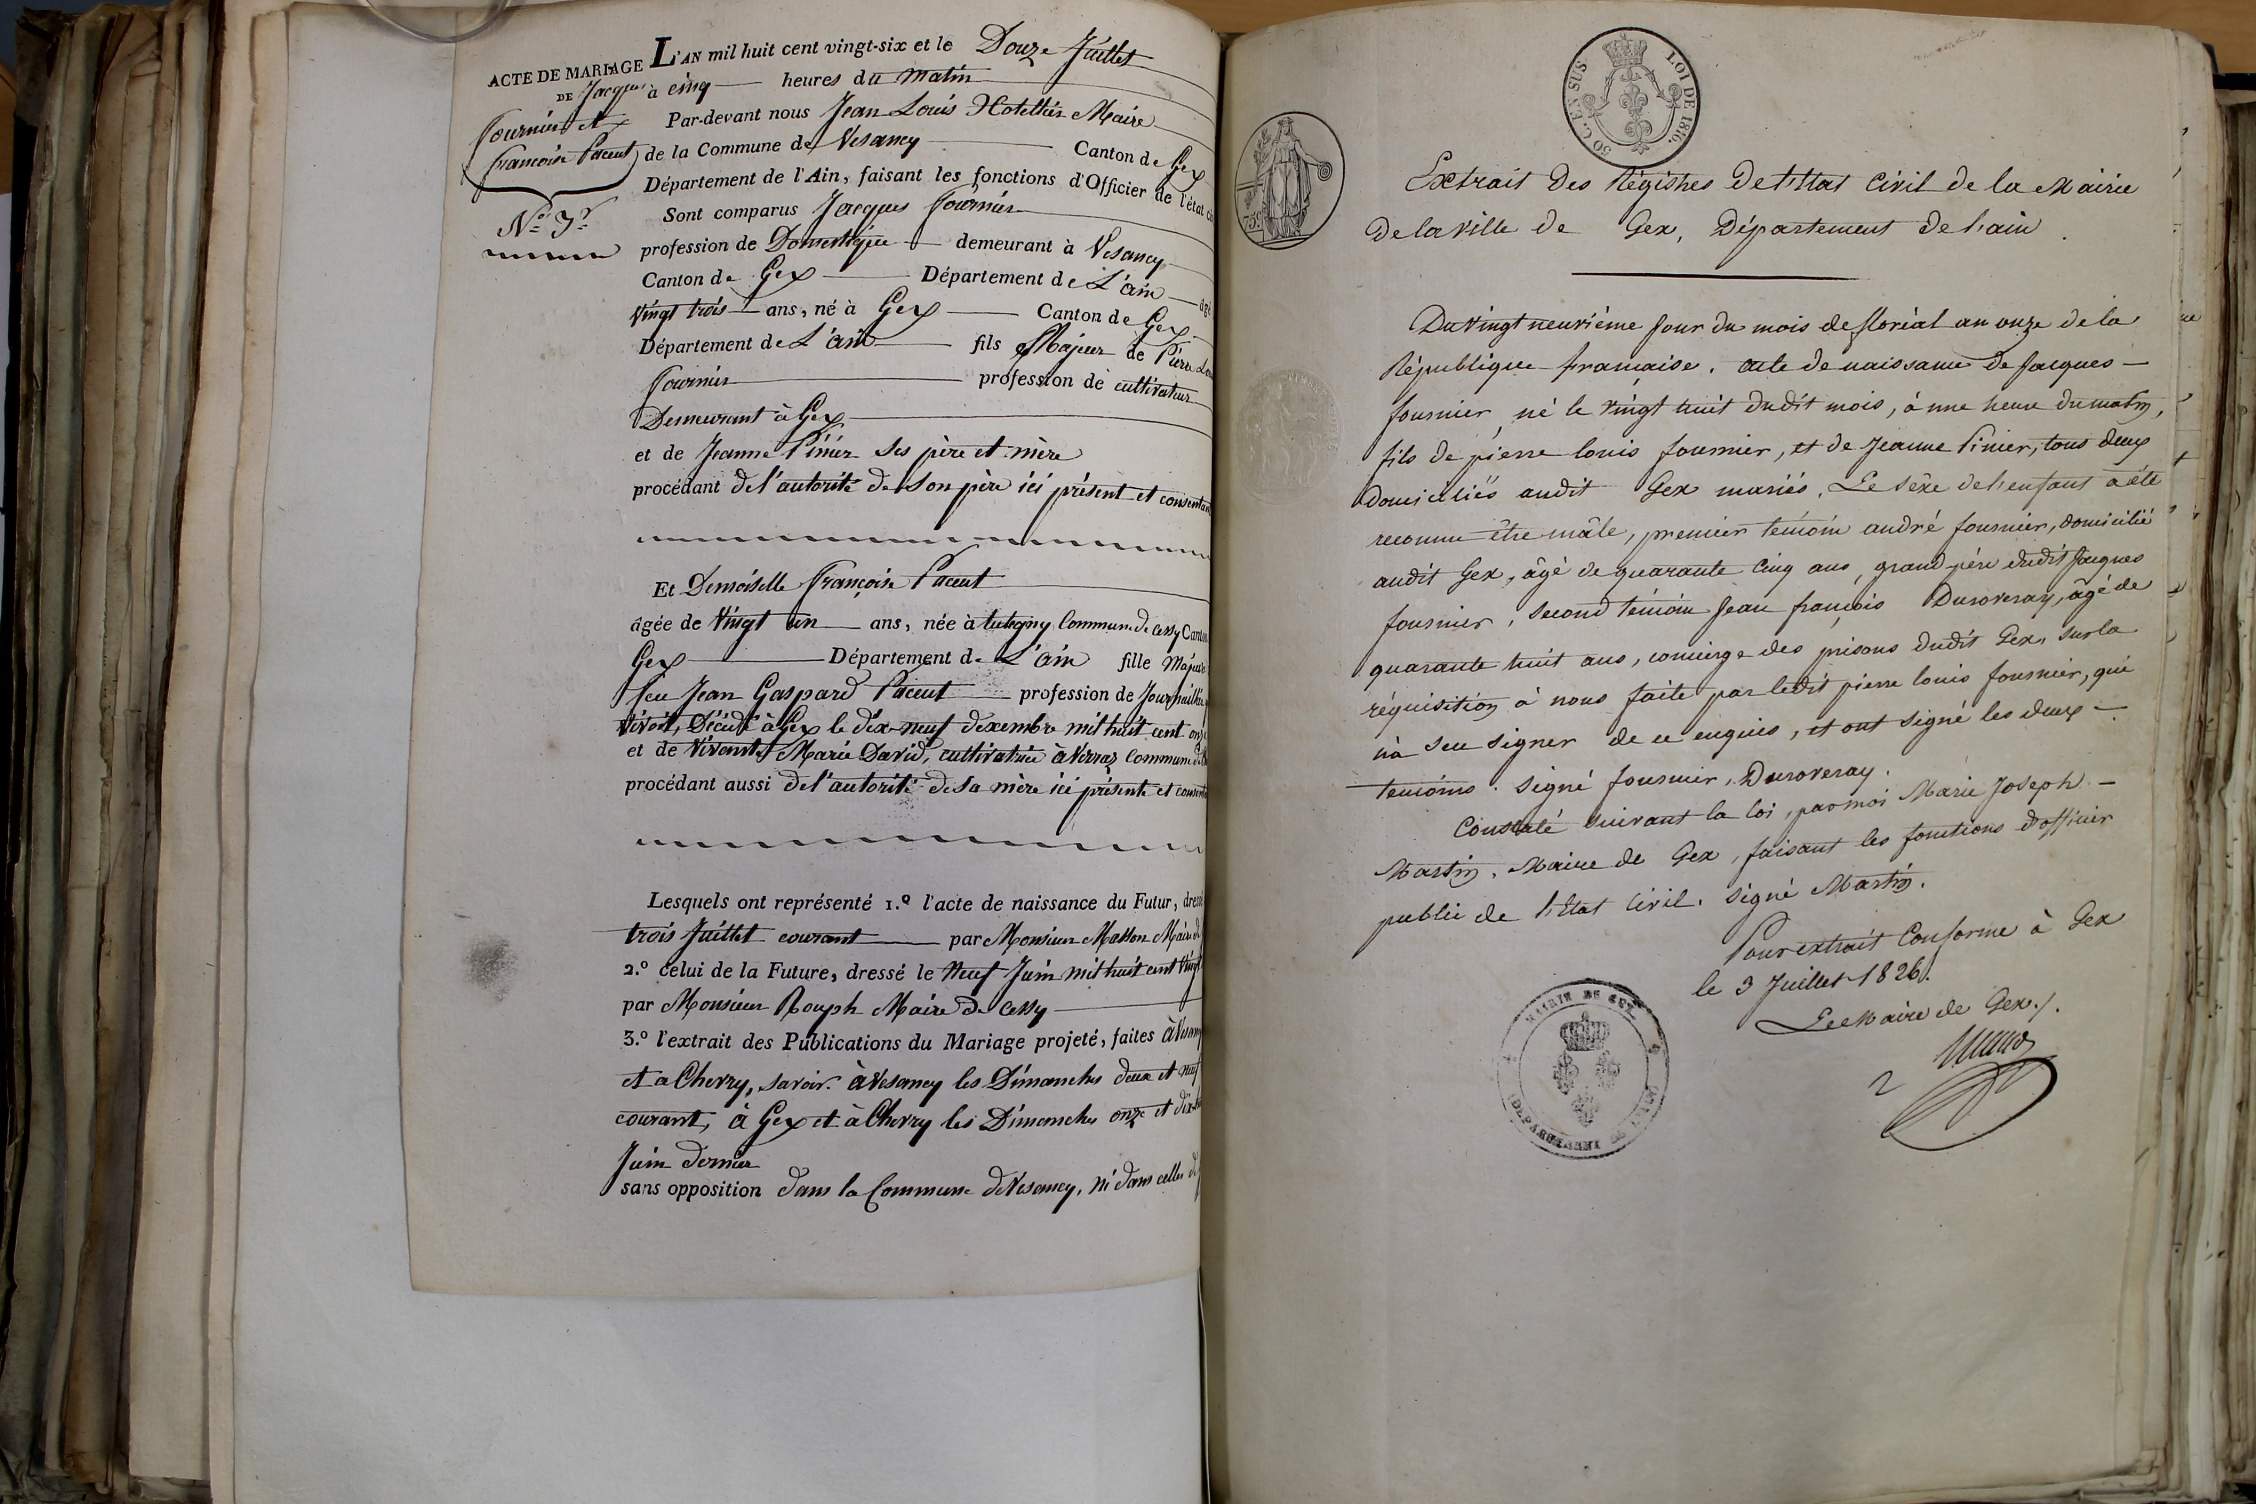 ACTE DE MARIAGE
DE Jacques
Fournier et
Françoise Pacent
N.º 3.
L'AN mil huit cent vingt-six et le Douze Juillet
à cinq heures du matin
Par-devant nous Jean Louis Hotellier Maire
de la Commune de Vesancy Canton de Gex
Département de l'Ain, faisant les fonctions d'Officier de l'état ci
Sont comparus Jacques Fournier
profession de Domestique demeurant à Vesancy
Canton de Gex Département de L'ain âgé
Vingt trois ans, né à Gex Canton de Gex
Département de L'ain fils Majeur de Pierre Lou
Fournier profession de cultivateur
Demeurant à Gex
et de Jeanne Pinier ses père et mère
procédant de l'autorité de son père ici présent et consentant
Et Demoiselle Françoise Pacent
âgée de Vingt un ans, née à Tutegny Commune de Cessy Canton
Gex Département de L'ain fille Majeure
feu Jean Gaspard Pacent profession de Journaillier
vivoit, Décédé à Gex le dix-neuf dexembre mil huit cent onze
et de vivante Marie David, cultivatrice à Vernaz Commune de
procédant aussi de l'autorité de sa mère ici présente et consent
Lesquels ont représenté 1.º l'acte de naissance du Futur, dressé
trois Juillet courant par Monsieur Masson Maire de
2.º celui de la Future, dressé le Neuf Juin mil huit cent vingt
par Monsieur Rouph Maire de Cessy
3.º l'extrait des Publications du Mariage projeté, faites à Vesancy
et a Chevry, savoir: à Vesancy les Dimanches deux et neuf
courant, à Gex et à Chevry les Dimanches onze et dix-huit
Juin dernier
sans opposition dans la Commune de Vesancy, ni dans celles de
50 C. EN SUS
LOI DE 1816.
75 c.
Extrait des Régistres de l'Etat Civil de la Mairie
de la ville de Gex, Département de l'ain.
Du vingt neuvième jour du mois de floréal an onze de la
République française. acte de naissance de Jacques
fournier, né le vingt huit dudit mois, à une heure du matin,
fils de pierre louis fournier, et de Jeanne Pinier, tous deux
domiciliés audit Gex mariés. Le sèxe de l'enfant a été
reconnu être mâle, premier témoin andré fournier, domicilié
audit Gex, âgé de quarante cinq ans, grand-père dudit Jacques
fournier, second témoin Jean françois Duroveray, âgé de
quarante huit ans, concierge des prisons dudit Gex, sur la
réquisition à nous faite par ledit pierre louis fournier, qui
n'a seu signer de ce enquis, et ont signé les deux
temoins. Signé fournier, Duroveray.
Constaté suivant la loi, par moi Marie Joseph
Martin, Maire de Gex, faisant les fonctions d'officier
public de l'Etat Civil. Signé Martin.
Pour extrait Conforme à Gex
le 3 Juillet 1826.
Le Maire de Gex./.
MAIRIE DE GEX
DEPARTEMENT DE L'AIN